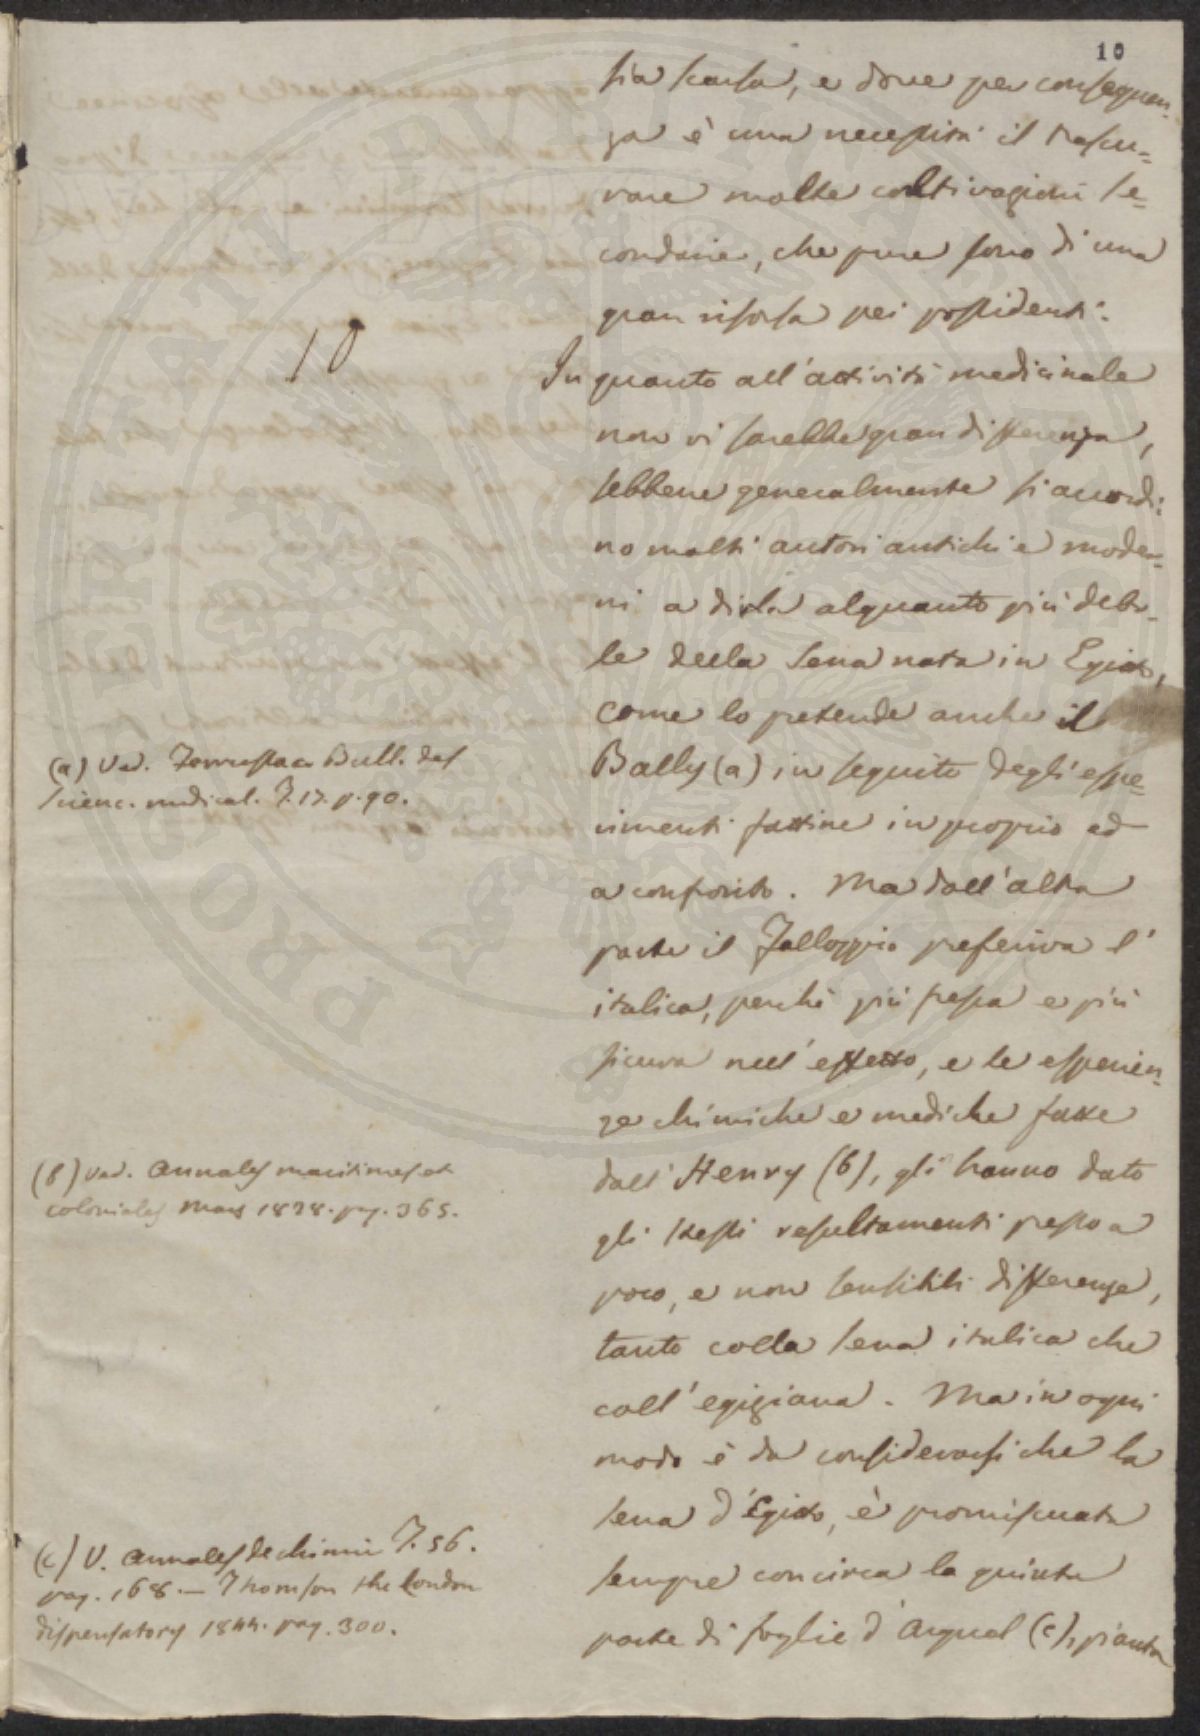 10
sia scarsa, e dove per conseguen-
za è una necessità il trascu-
rare molte coltivazioni se-
condarie, che pure sono di una
gran risorsa pei possidenti.
10
In quanto all'attività medicinale
non vi sarebbe gran differenza,
sebbene generalmente si accordi-
no molti autori antichi e moder-
ni a dirla alquanto più debo-
le della Sena nata in Egitto,
come lo pretende anche il
Bally (a) in seguito degli espe-
rimenti fattine in proprio ed
a confronto. Ma dall'altra
parte il Falloppio preferiva l'
italica, perchè più fresca e più
sicura nell'effetto, e le esperien-
ze chimiche e mediche fatte
dall'Henry (b), gli hanno dato
gli stessi resultamenti presso a
poco, e non sensibili differenze,
tanto colla sena italica che
coll'egiziana. Ma in ogni
modo è da considerarsi che la
sena d'Egitto, è promiscuata
sempre con circa la quinta
parte di foglie d'Arguel (c), pianta
(a) Ved. Bull. des
Scienc. medical. T. 17. p. 90.
(b) Ved. Annales maritimes et
coloniales Mars 1828. pag. 365.
(c) V. Annales de chimie T. 56.
pag. 168. — Thomson the London
dispensatory 1844. pag. 300.
PROPRIETATI PVBLICAE